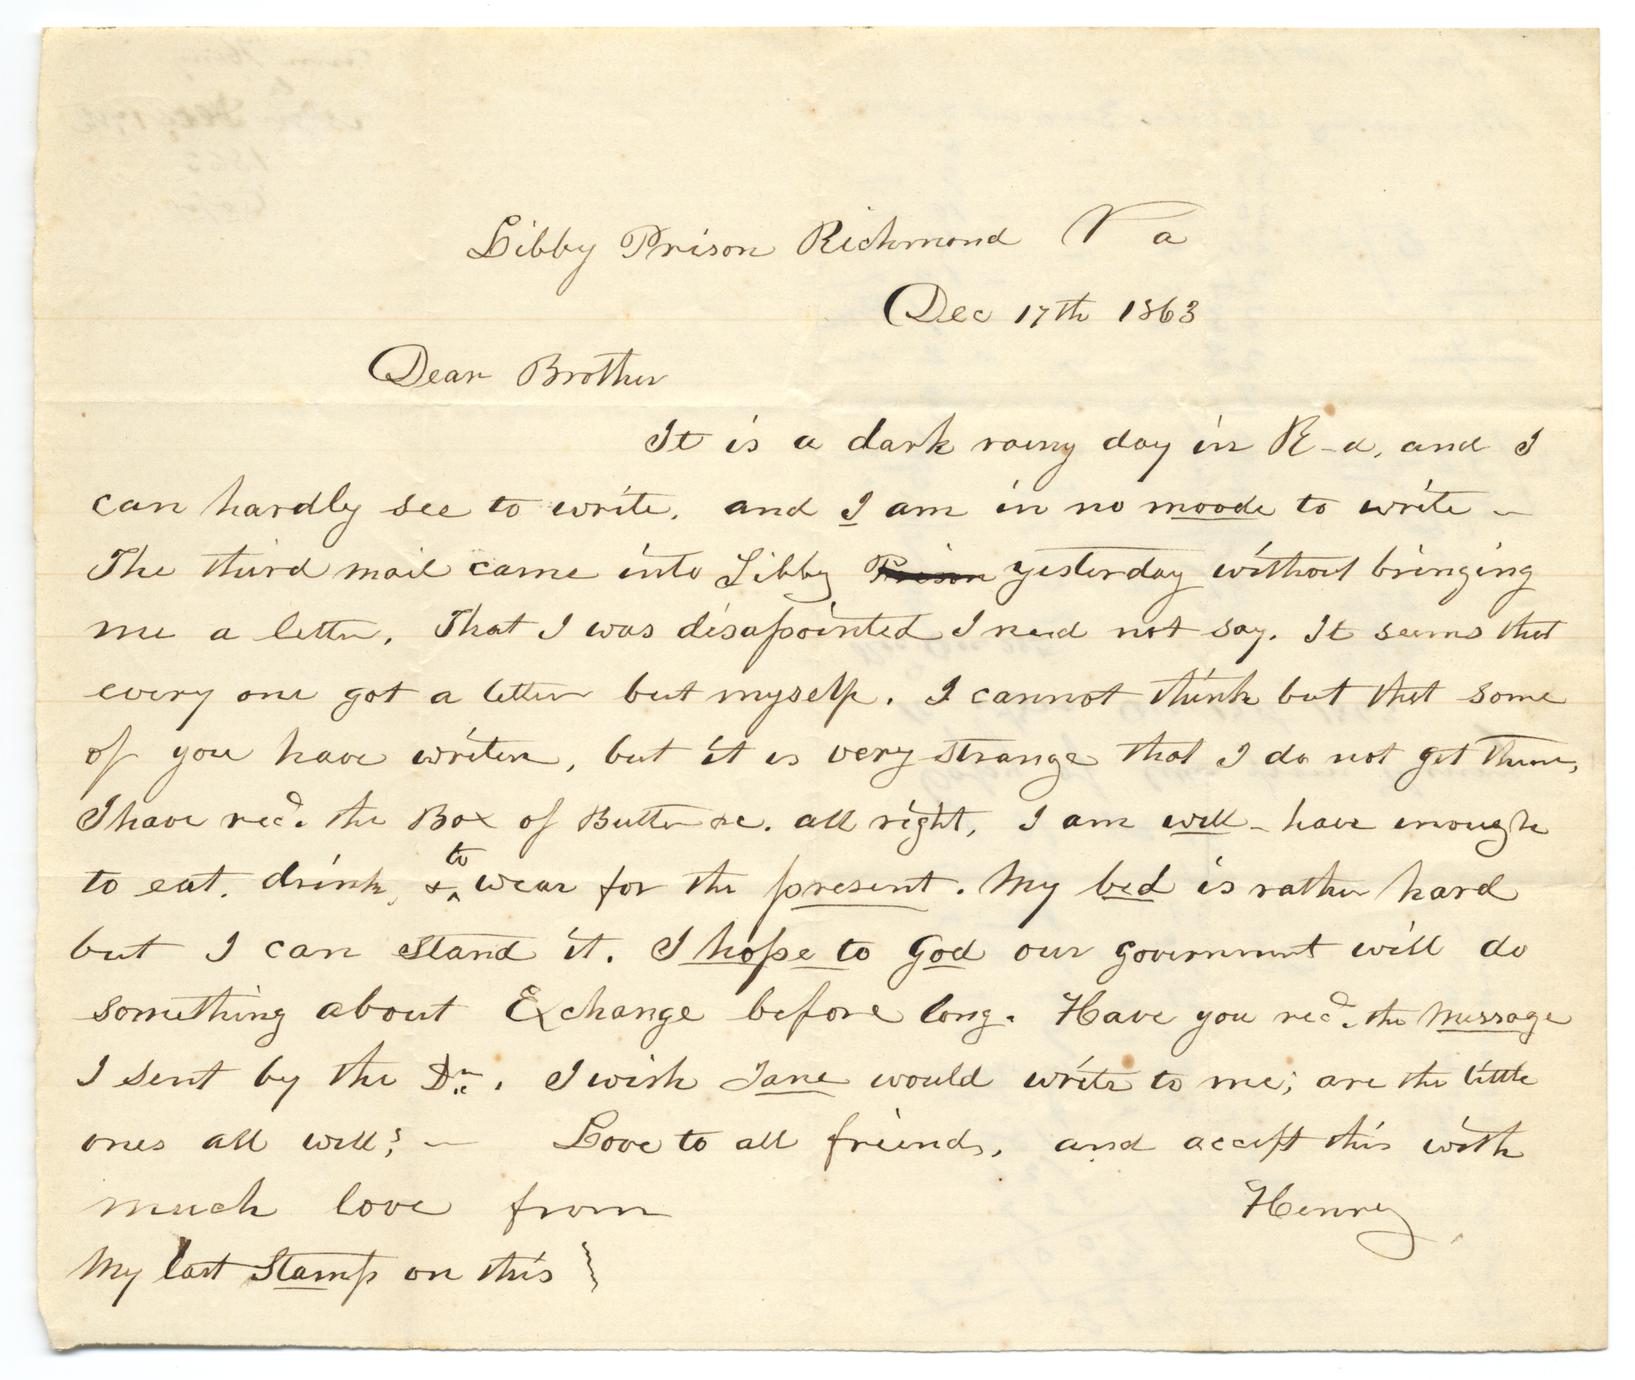 Libby Prison Richmond Va
Dec 17th 1863
Dear Brother
It is a dark rainy day in R-d, and I
can hardly see to write, and I am in no moode to write –
The third mail came into Libby Prison yesterday without bringing
me a letter. That I was disapointed I need not say. It seems that
every one got a letter but myself. I cannot think but that some
of you have writen, but it is very strange that I do not get them,
I have recd. the Box of Butter &c. all right, I am well – have enough
to eat, drink, & to wear for the present. My bed is rather hard
but I can stand it. I hope to God our government will do
something about Exchange before long. Have you recd. the Message
I sent by the Dr. I wish Jane would write to me; are the little
ones all well? — Love to all friends, and accept this with
much love from Henry
My last Stamp on this }